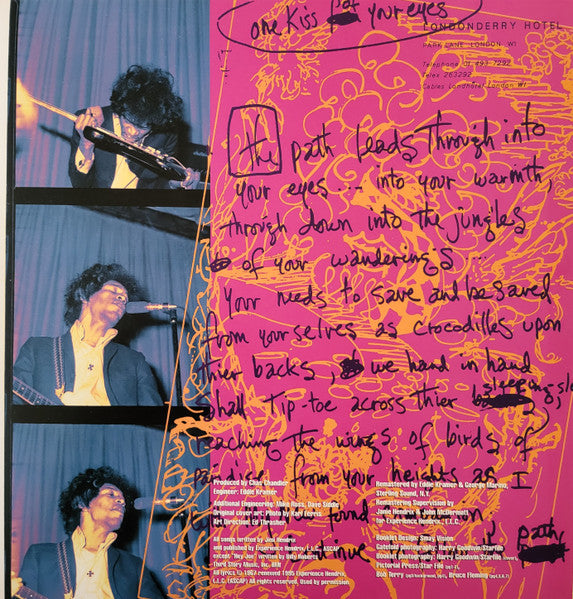 one Kiss for your eyes
LONDONDERRY HOTEL
PARK LANE LONDON W1
Telephone 01 493 7292
Telex 263292
Cables Londhotel London W1
the path leads Through into
your eyes ... into your warmth,
through down into the jungles
of your wanderings ...
Your needs to save and be saved
from your selves as crocodilles upon
thier backs, we hand in hand
shall Tip-toe across thier sleeping
reaching The wings of birds of
paridise from your heights as I
found
path
Produced by Chas Chandler
Engineer: Eddie Kramer
Additional Engineering: Mike Ross, Dave Siddle
Original cover art: Photo by Karl Ferris
Art Direction: Ed Thrasher
All songs written by Jimi Hendrix
and published by Experience Hendrix, L.L.C. (ASCAP)
except "Hey Joe", written by Billy Roberts
Third Story Music, Inc. BMI
All lyrics © 1967 renewed 1995 Experience Hendrix,
L.L.C. (ASCAP) All rights reserved. Used by permission
Remastered by Eddie Kramer & George Marino,
Sterling Sound, N.Y.
Remastering Supervision by
Janie Hendrix & John McDermott
for Experience Hendrix, L.L.C.
Booklet Design: Smay Vision
Gatefold photography: Harry Goodwin/Starfile
Booklet photography: Harry Goodwin/Starfile
Pictorial Press/Star File
Bob Terry Bruce Fleming